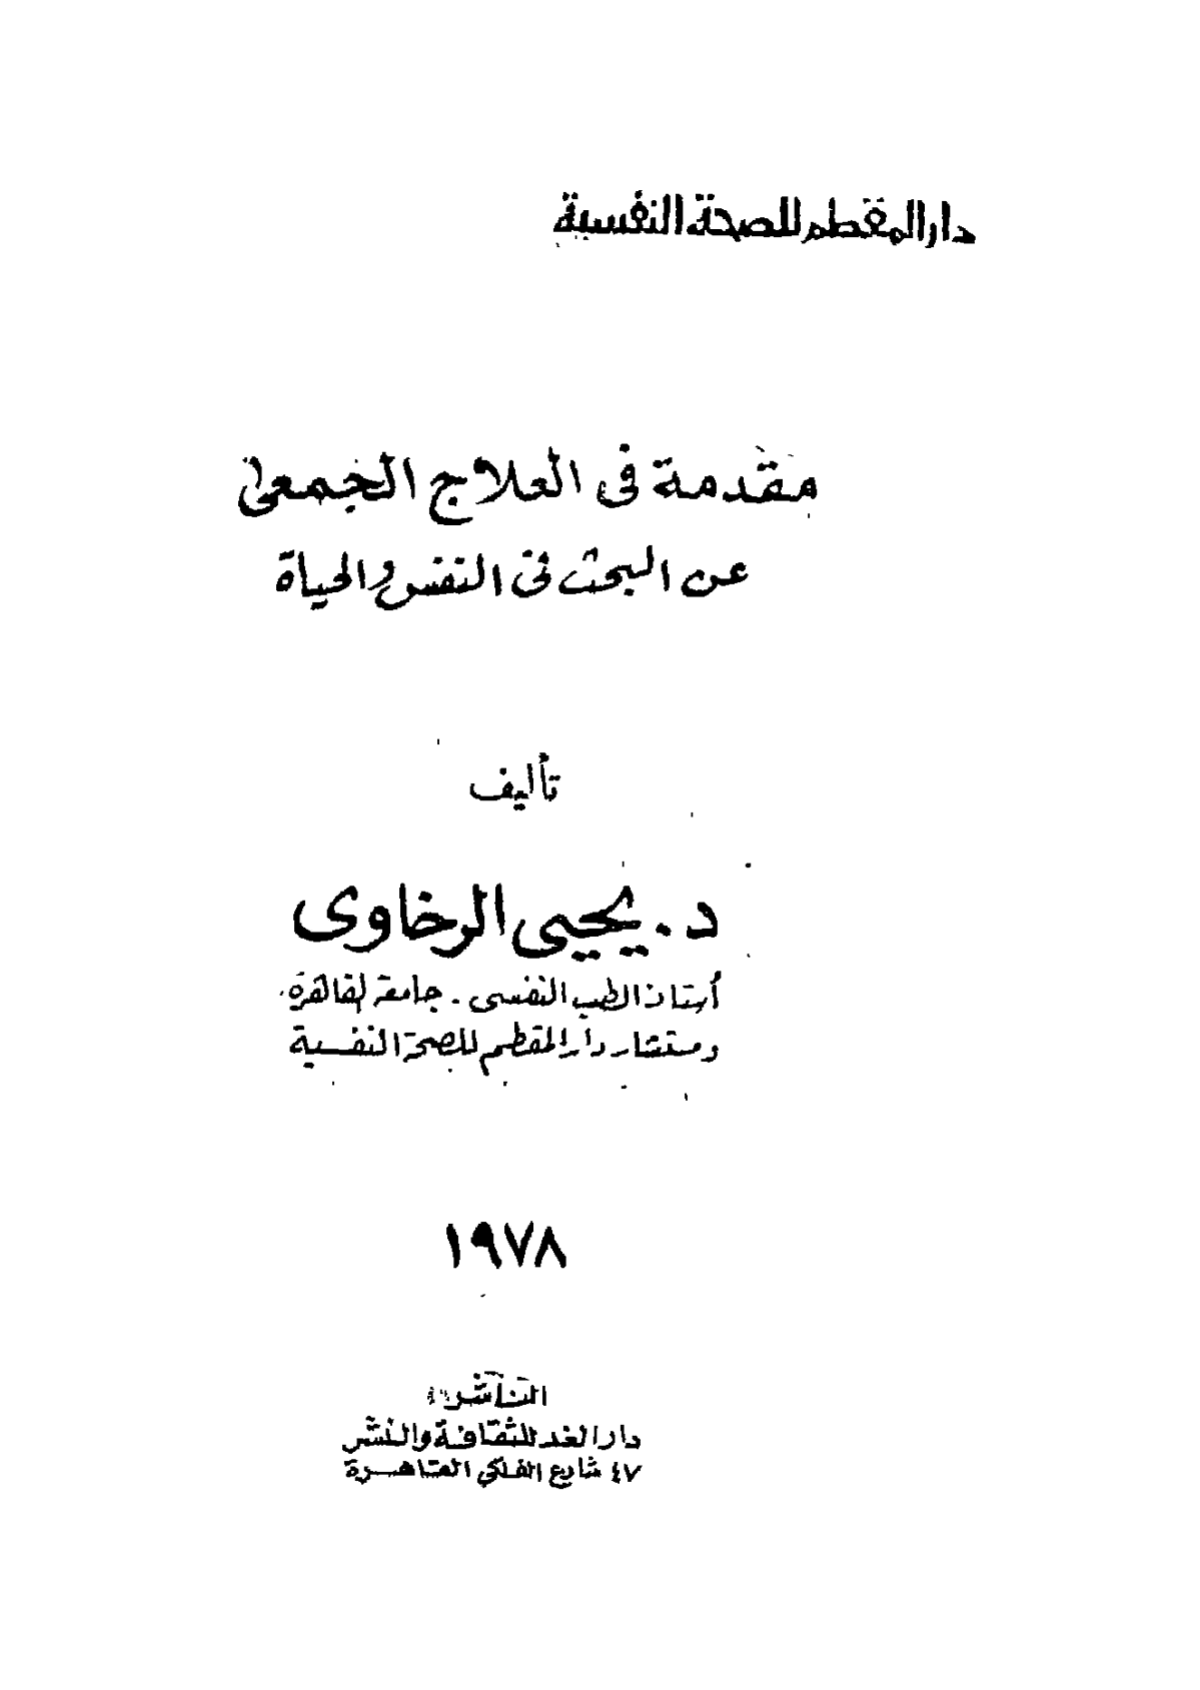 دار المقطم للصحة النفسية
مقدمة فى العلاج الجمعى
عن البحث فى النفس والحياة
تأليف
د. يحيى الرخاوى
أستاذ الطب النفسى . جامعة القاهرة
ومستشار دار المقطم للصحة النفسية
١٩٧٨
الناشر
دار الغد للثقافة والنشر
٤٧ شارع الفلكى القاهرة